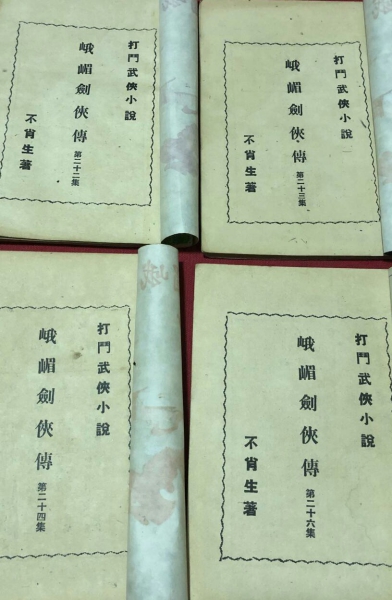 打鬥武俠小說
峨嵋劍俠傳 第二十二集
不肖生著
打鬥武俠小說
峨嵋劍俠傳 第二十三集
不肖生著
打鬥武俠小說
峨嵋劍俠傳 第二十四集
打鬥武俠小說
峨嵋劍俠傳 第二十六集
不肖生著